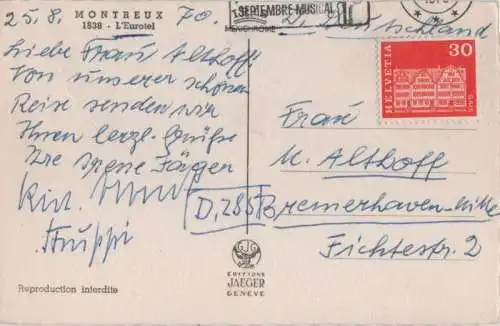 MONTREUX
1838 - L'Eurotel
25.8. 70.
SEPTEMBRE MUSICAL
Deutschland
Liebe Frau Althoff!
Von unserer schönen
Reise senden wir
Ihnen herzl. Grüße
Ihre Irene Jäger
HELVETIA
30
GAIS
Frau
M. Althoff
D, 285 Bremerhaven-Mitte
Fichtestr. 2
EDITIONS
JAEGER
GENEVE
Reproduction interdite